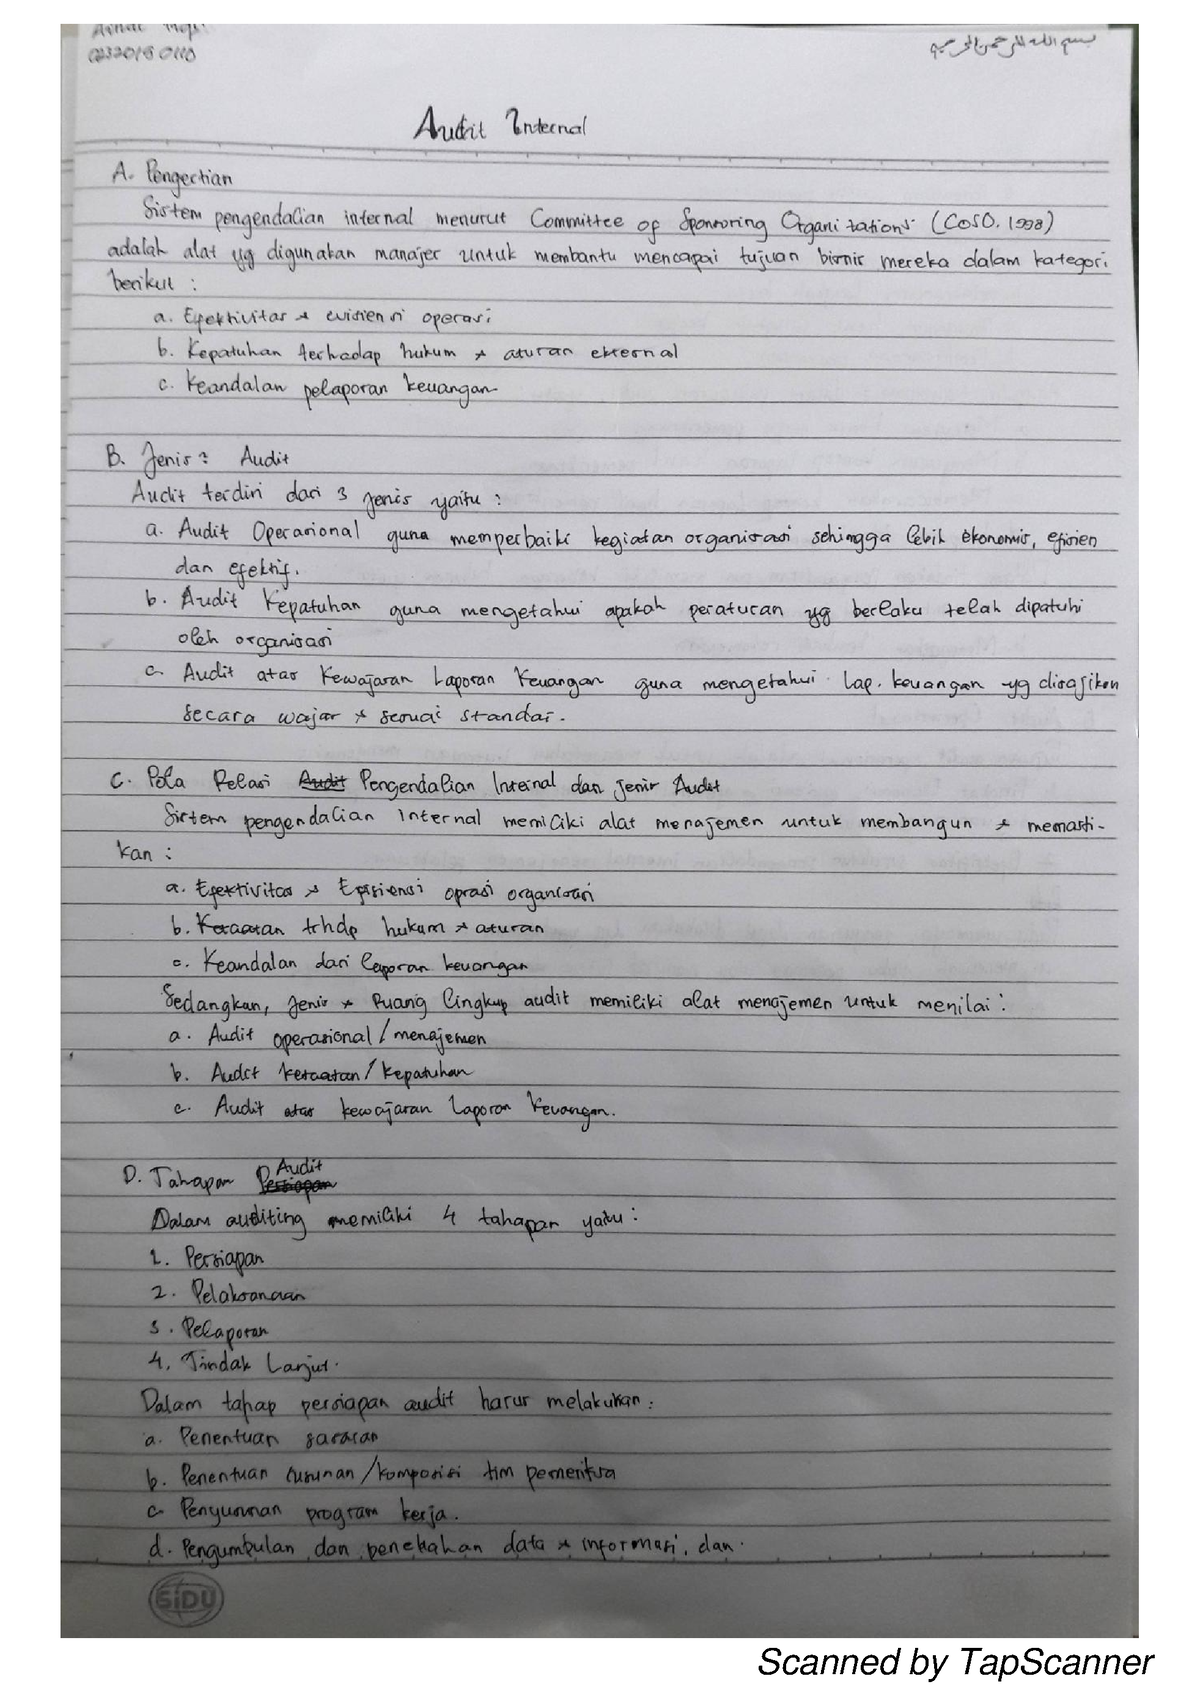 02320180110
بسم الله الرحمن الرحيم
Audit Internal
A. Pengertian
Sistem pengendalian internal menurut Committee of Sponsoring Organizations (COSO. 1998)
adalah alat yg digunakan manajer untuk membantu mencapai tujuan bisnis mereka dalam kategori
berikut :
a. Efektivitas & evisiensi operasi
b. Kepatuhan terhadap hukum & aturan eksternal
c. Keandalan pelaporan keuangan
B. Jenis2 Audit
Audit terdiri dari 3 jenis yaitu :
a. Audit Operasional guna memperbaiki kegiatan organisasi sehingga lebih ekonomis, efisien
dan efektif.
b. Audit Kepatuhan guna mengetahui apakah peraturan yg berlaku telah dipatuhi
oleh organisasi
c. Audit atas Kewajaran Laporan Keuangan guna mengetahui lap. keuangan yg disajikan
secara wajar & sesuai standar.
C. Pola Relasi Audit Pengendalian Internal dan jenis Audit
Sistem pengendalian internal memiliki alat menajemen untuk membangun & memasti-
kan :
a. Efektivitas & Efisiensi oprasi organisasi
b. Ketaatan trhdp hukum & aturan
c. Keandalan dari laporan keuangan
Sedangkan, jenis & Ruang lingkup audit memiliki alat menajemen untuk menilai :
a. Audit operasional / menajemen
b. Audit ketaatan / kepatuhan
c. Audit atas kewajaran Laporan Keuangan.
D. Tahapan Persiapan Audit
Dalam auditing memiliki 4 tahapan yaitu :
1. Persiapan
2. Pelaksanaan
3. Pelaporan
4. Tindak Lanjut.
Dalam tahap persiapan audit harus melakukan :
a. Penentuan sasaran
b. Penentuan susunan / komposisi tim pemeriksa
c. Penyusunan program kerja.
d. Pengumpulan dan penelahan data & informasi, dan.
SIDU
Scanned by TapScanner